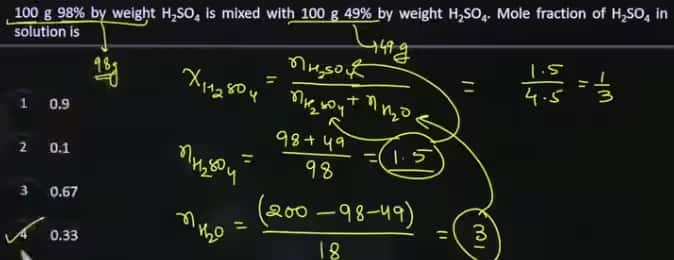 100 g 98% by weight H₂SO₄ is mixed with 100 g 49% by weight H₂SO₄. Mole fraction of H₂SO₄ in
solution is
98g
49g
X H₂SO₄ = n H₂SO₄ / n H₂SO₄ + n H₂O = 1.5 / 4.5 = 1/3
1 0.9
2 0.1
n H₂SO₄ = 98 + 49 / 98 = 1.5
3 0.67
n H₂O = (200 - 98 - 49) / 18 = 3
4 0.33